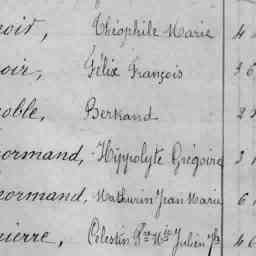 noir, Théophile Marie 4
noir, Félix François 36
noble, Bertrand 2
normand, Hippolyte Grégoire 3
normand, Mathurin Jean Marie 6
pierre, Célestin Julien 46